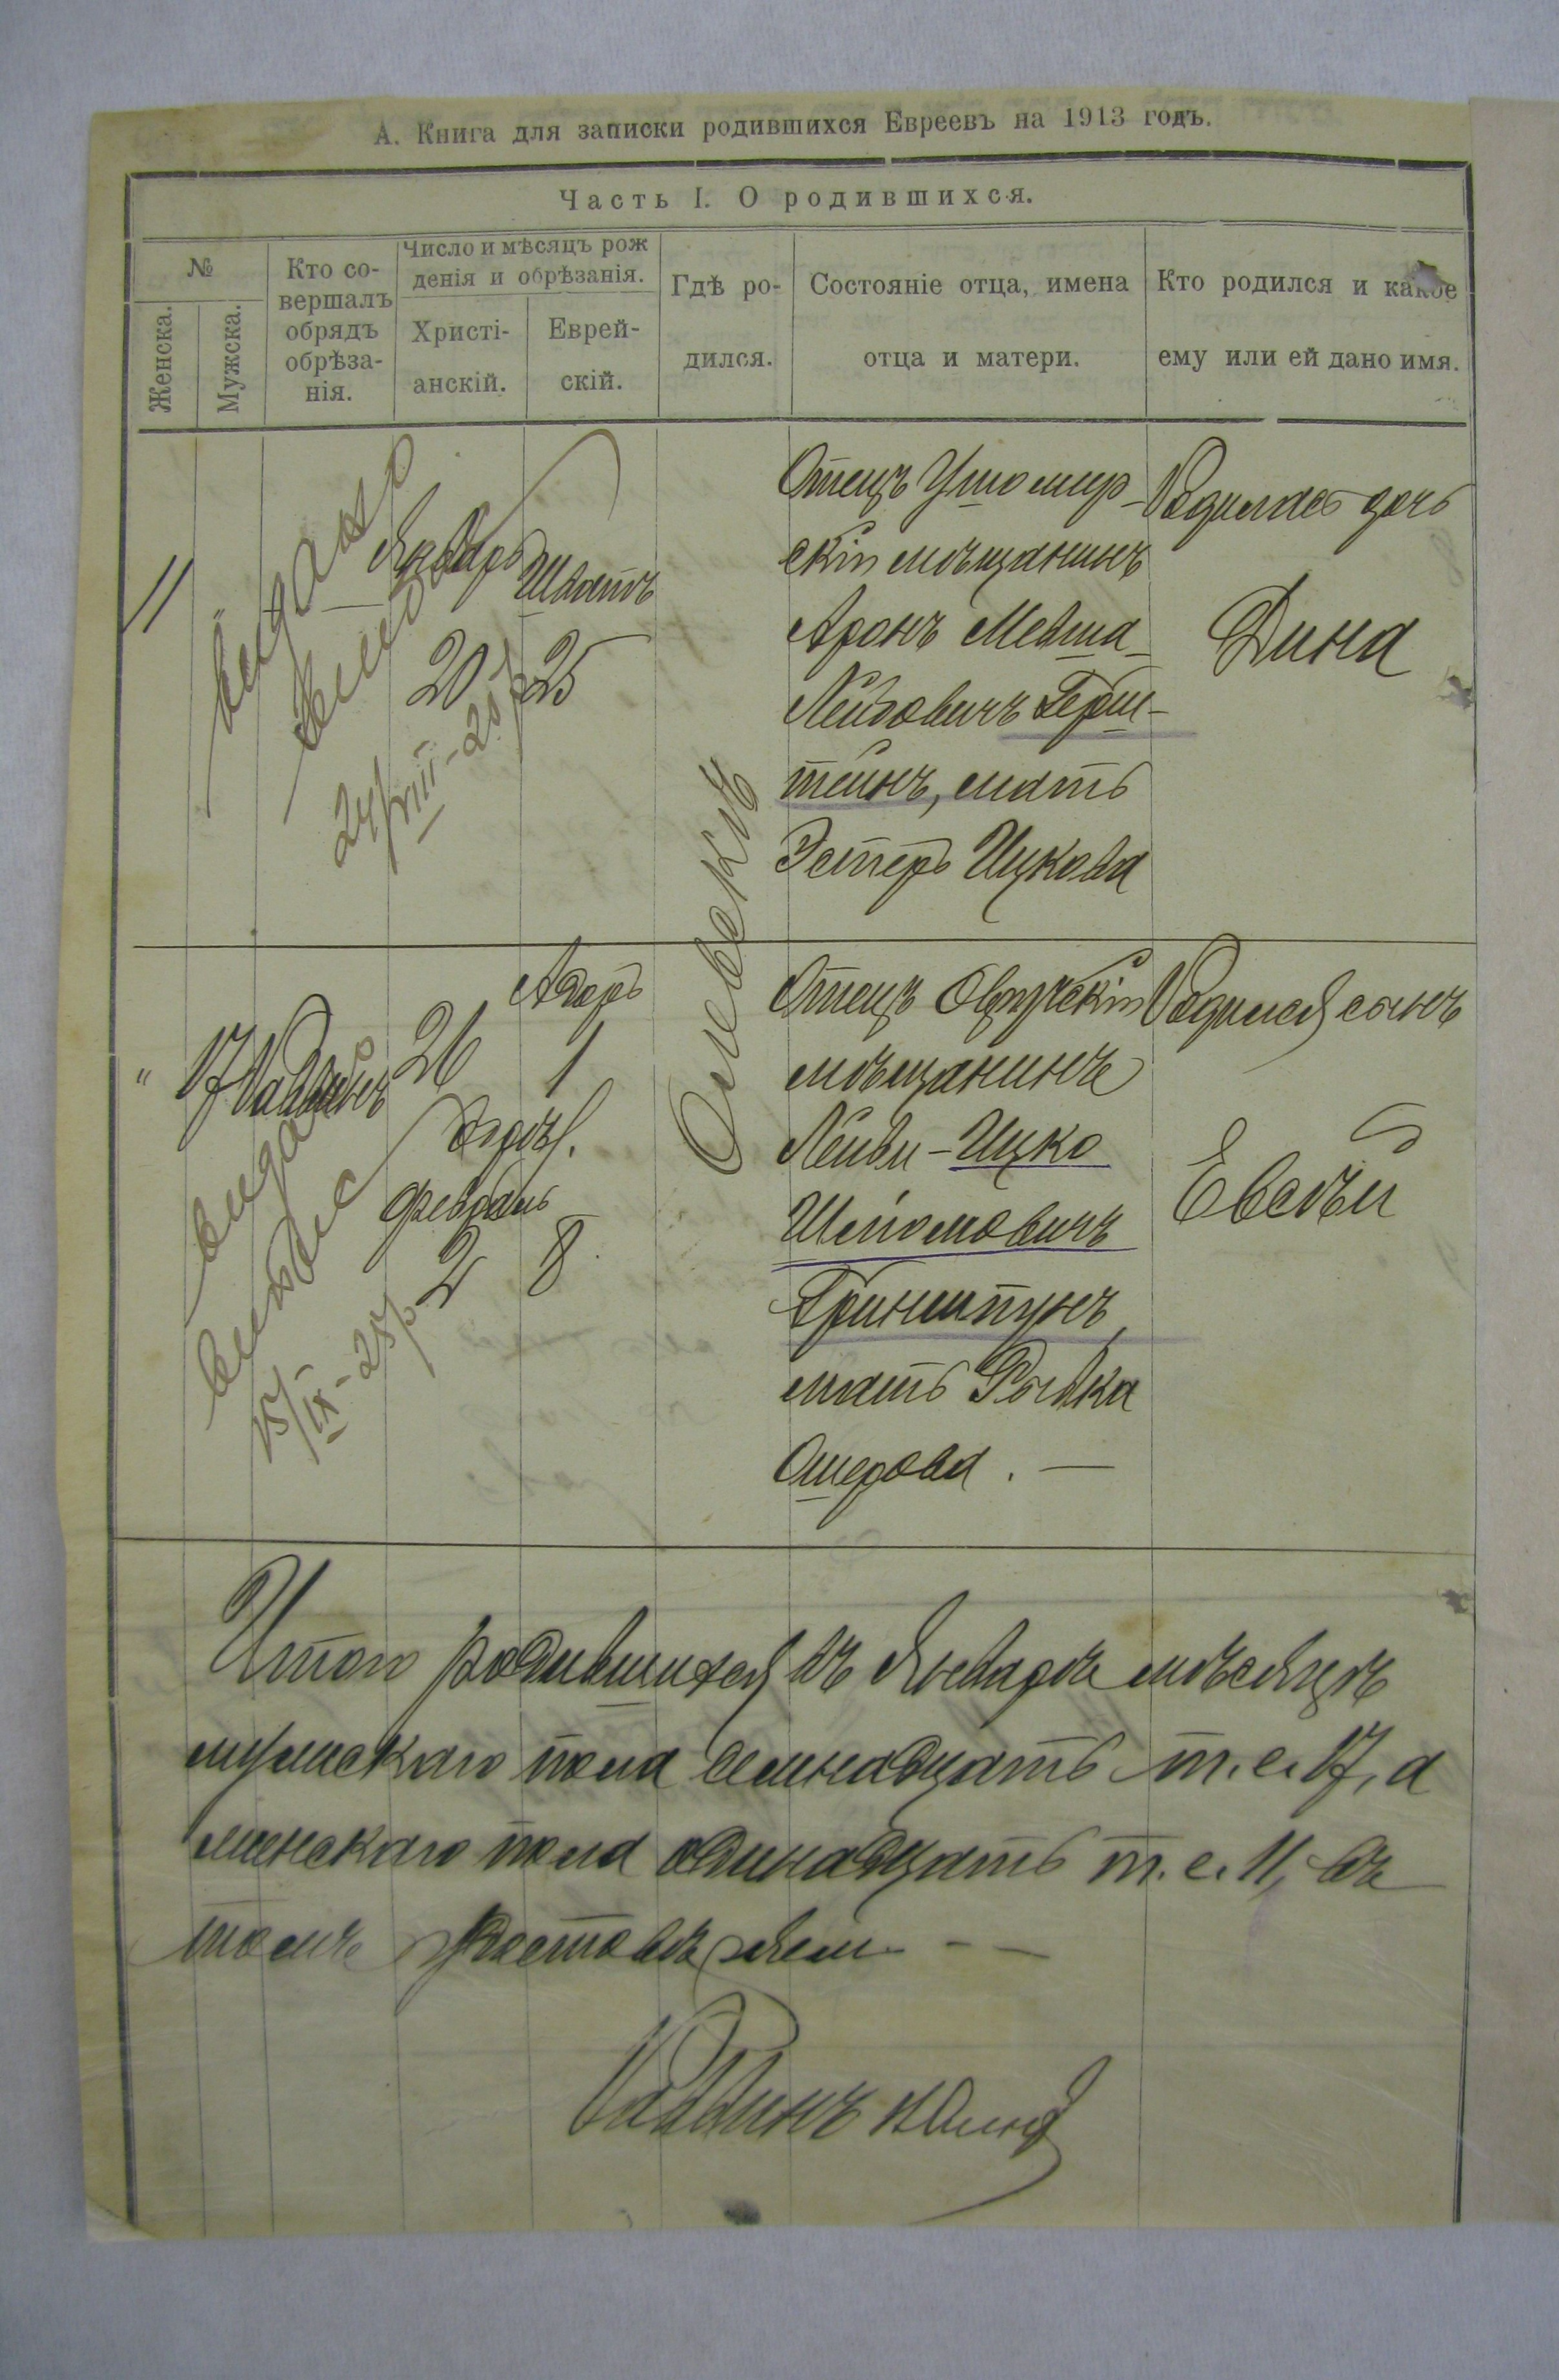 А. Книга для записки родившихся Евреевъ на 1913 годъ.
Часть I. О родившихся.
№
Женска.
Мужска.
Кто со-
вершалъ
обрядъ
обрѣза-
нія.
Число и мѣсяцъ рож
денія и обрѣзанія.
Христі-
анскій.
Еврей-
скій.
Гдѣ ро-
дился.
Состояніе отца, имена
отца и матери.
Кто родился и какое
ему или ей дано имя.
11
"
выдано
Январь
20
Шватъ
25
24/VIII-28 р
Олевскъ
Отецъ Ушомир-
скій мѣщанинъ
Аронъ Мевша-
Лейбовичъ Герш-
тейнъ, мать
Эстеръ Ицкова
Родилась дочь
Дина
"
17
Раввинъ
выдано
15/IX-28 р
26
обрѣз.
Февраль
2
Адаръ
1
8
Отецъ Овручскій
мѣщанинъ
Лейви-Ицко
Шліомовичъ
Гриншпунъ,
мать Рывка
Ошерова. —
Родился сынъ
Евсѣй
Итого родившихся въ Январѣ мѣсяцѣ
мужскаго пола семнадцать т. е. 17, а
женскаго пола одинадцать т. е. 11, въ
томъ удостовѣряемъ - —
Раввинъ